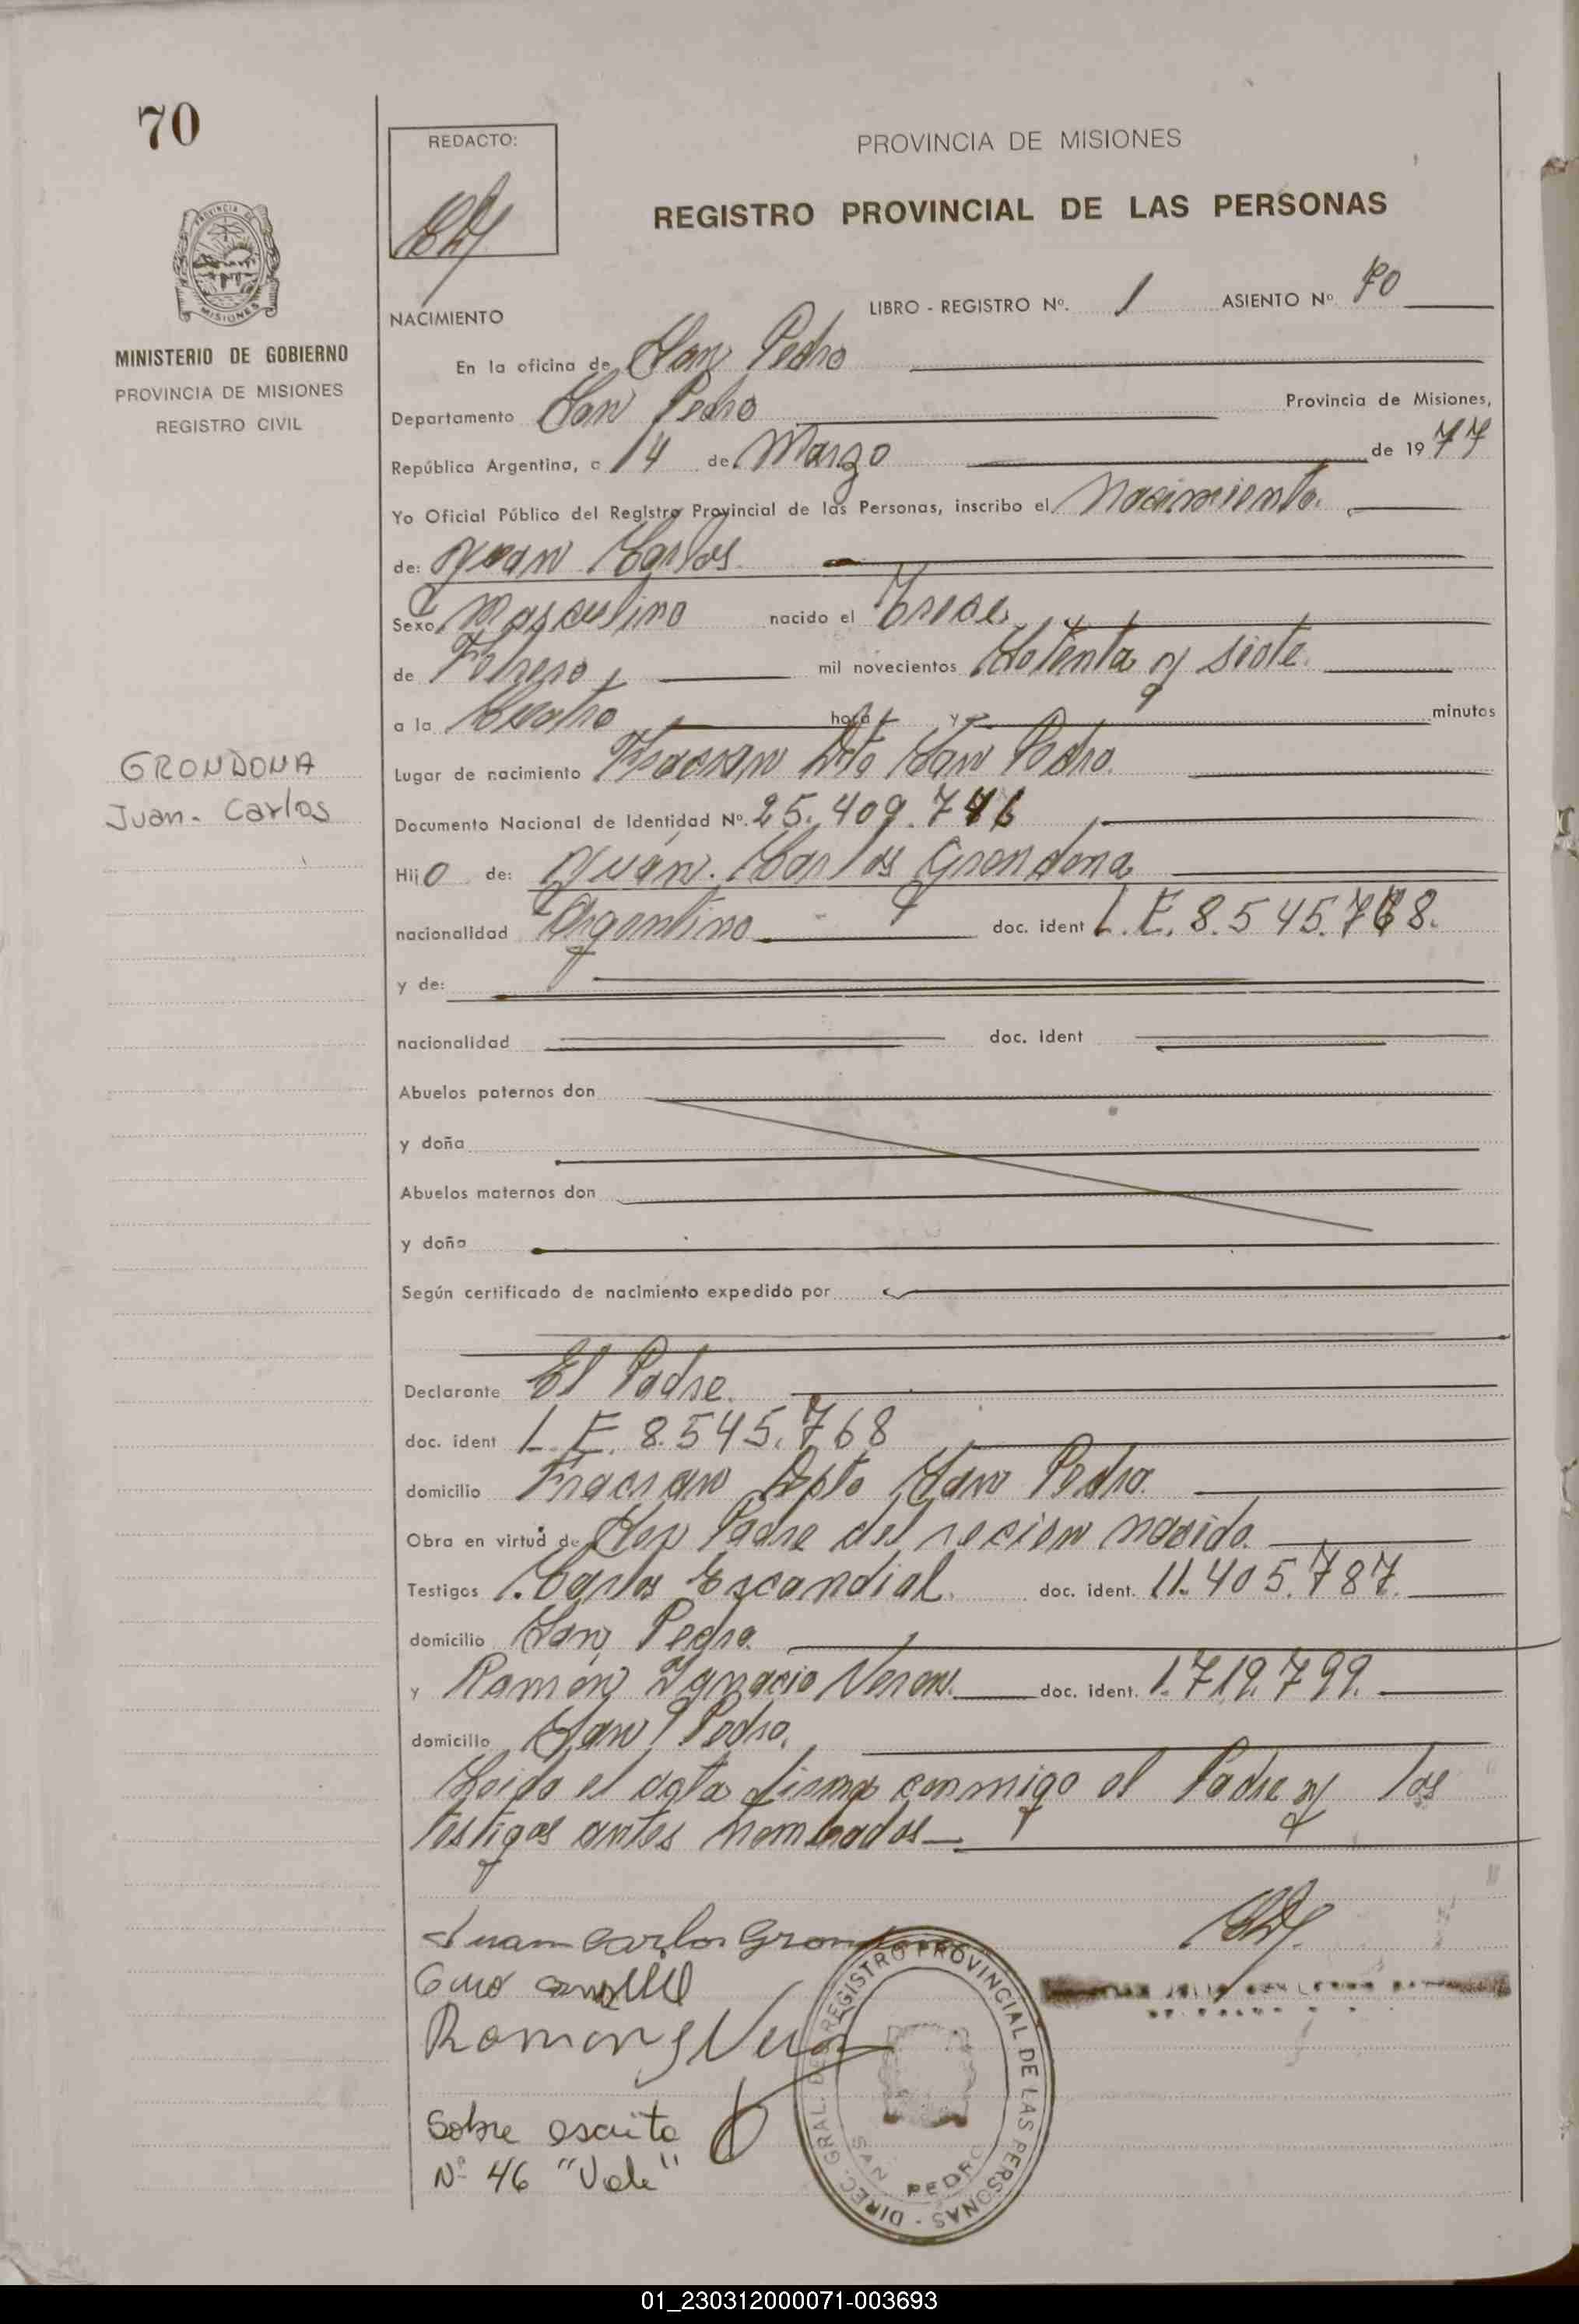 70
REDACTO:
PROVINCIA DE MISIONES
REGISTRO PROVINCIAL DE LAS PERSONAS
MISIONES
MINISTERIO DE GOBIERNO
PROVINCIA DE MISIONES
REGISTRO CIVIL
NACIMIENTO
LIBRO - REGISTRO Nº. 1 ASIENTO Nº 70
En la oficina de San Pedro
Departamento San Pedro Provincia de Misiones,
República Argentina, a 14 de Marzo de 1977
Yo Oficial Público del Registro Provincial de las Personas, inscribo el Nacimiento.
de: Juan Carlos
Sexo Masculino nacido el Trece
de Febrero mil novecientos Setenta y siete
a la Cuatro hora y minutos
Lugar de nacimiento Fracran Dto San Pedro.
GRONDONA
Juan- Carlos
Documento Nacional de Identidad Nº. 25.409.746
Hijo de: Juan Carlos Grondona
nacionalidad Argentino doc. ident L.E. 8.545.768.
y de:
nacionalidad doc. ident
Abuelos paternos don
y doña
Abuelos maternos don
y doña
Según certificado de nacimiento expedido por
Declarante El Padre.
doc. ident L.E. 8.545.768
domicilio Fracran Dpto San Pedro.
Obra en virtud de Ser Padre del recien nacido.
Testigos Carlos Escandial. doc. ident. 11.405.787.
domicilio San Pedro.
y Ramón Ignacio Veron. doc. ident. 1.719.799.
domicilio San Pedro.
Leida el acta firma conmigo el Padre y los
testigos antes nombrados
Juan Carlos Grondona
Ramon I Veron
DIREC. GRAL. DEL REGISTRO PROVINCIAL DE LAS PERSONAS -
SAN PEDRO
Sobre escrito
Nº 46 "Vale"
01_230312000071-003693